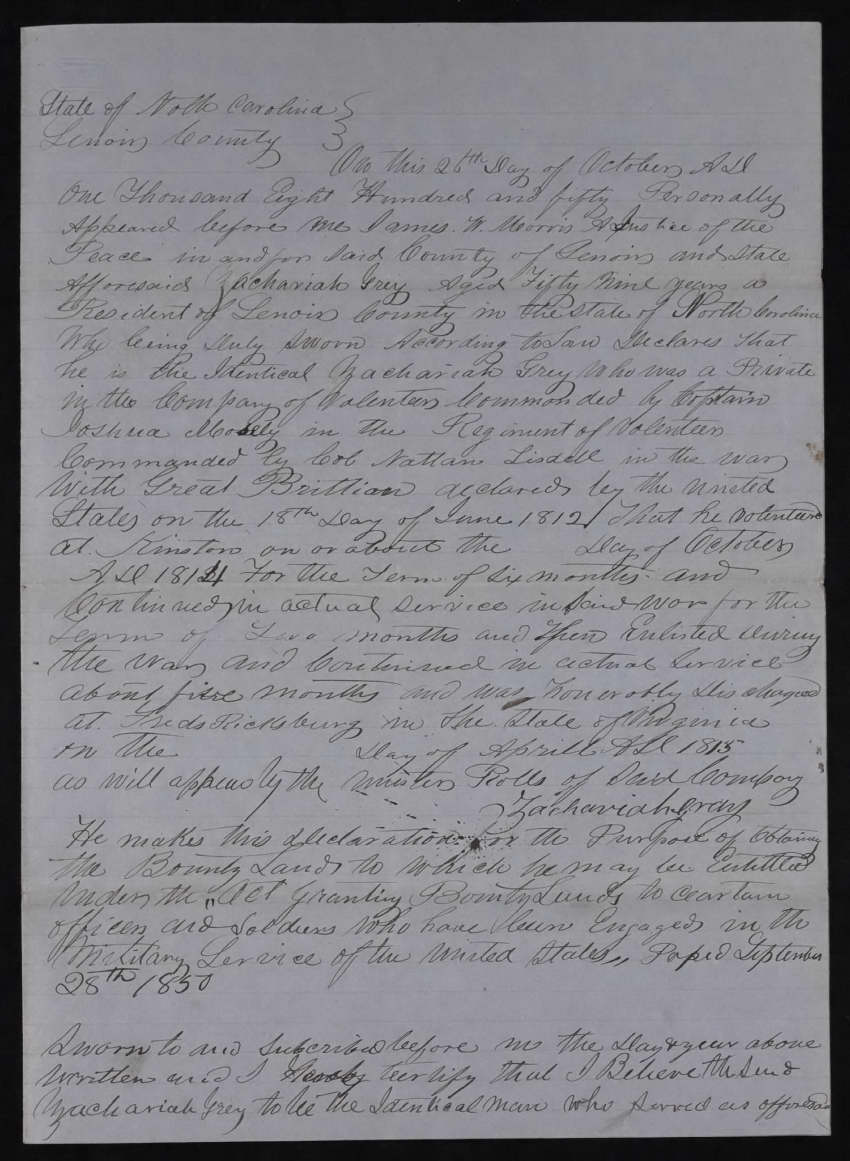 State of Noth Carolina }
Lenoir County }
On this 26th Day of October AD
One Thousand Eight Hundred and fifty Personally
Appeared before me James. W. Morris A Justice of the
Peace in and for Said County of Lenoir and State
Afforesaid Zachariah Grey Aged Fifty Nine years a
Resident of Lenoir County in the State of North Carolina
Who being Duly Sworn According to Law Declares That
he is the Identical Zachariah Grey Who was a Private
in the Company of Volenters Commonded by Captain
Joshua Mosely in the Regiment of Volenteers
Commanded by Col Nathan in the war
With Great Brittian declared by the united
States on the 18th Day of June 1812 / That he volenteerd
at Kinston on or about the Day of October
AD 1814 For the Term of Six months and
Continued in actual Service in Said war for the
Term of Two months and Then Enlisted During
the War and Continued in actual Service
about five months and was Honorobly Discharged
at Fredsricksburg in the State of Virginia
on the Day of Aprill AD 1815
as will appear by the muster Rolls of Said Company
Zachariah Gray
He makes this declaration for the Purpose of Obtaining
the Bounty Land to which he may be Entittled
under the "Act granting Bounty Lands to Ceartain
officers and Soldiers who have been Engaged in the
Military Service of the United States" Passed September
28th 1850
Sworn to and Subcribed before me the Day & year above
written and I Certify that I Believe the Said
Zachariah Grey to be the Identical man who Served as afforesaid